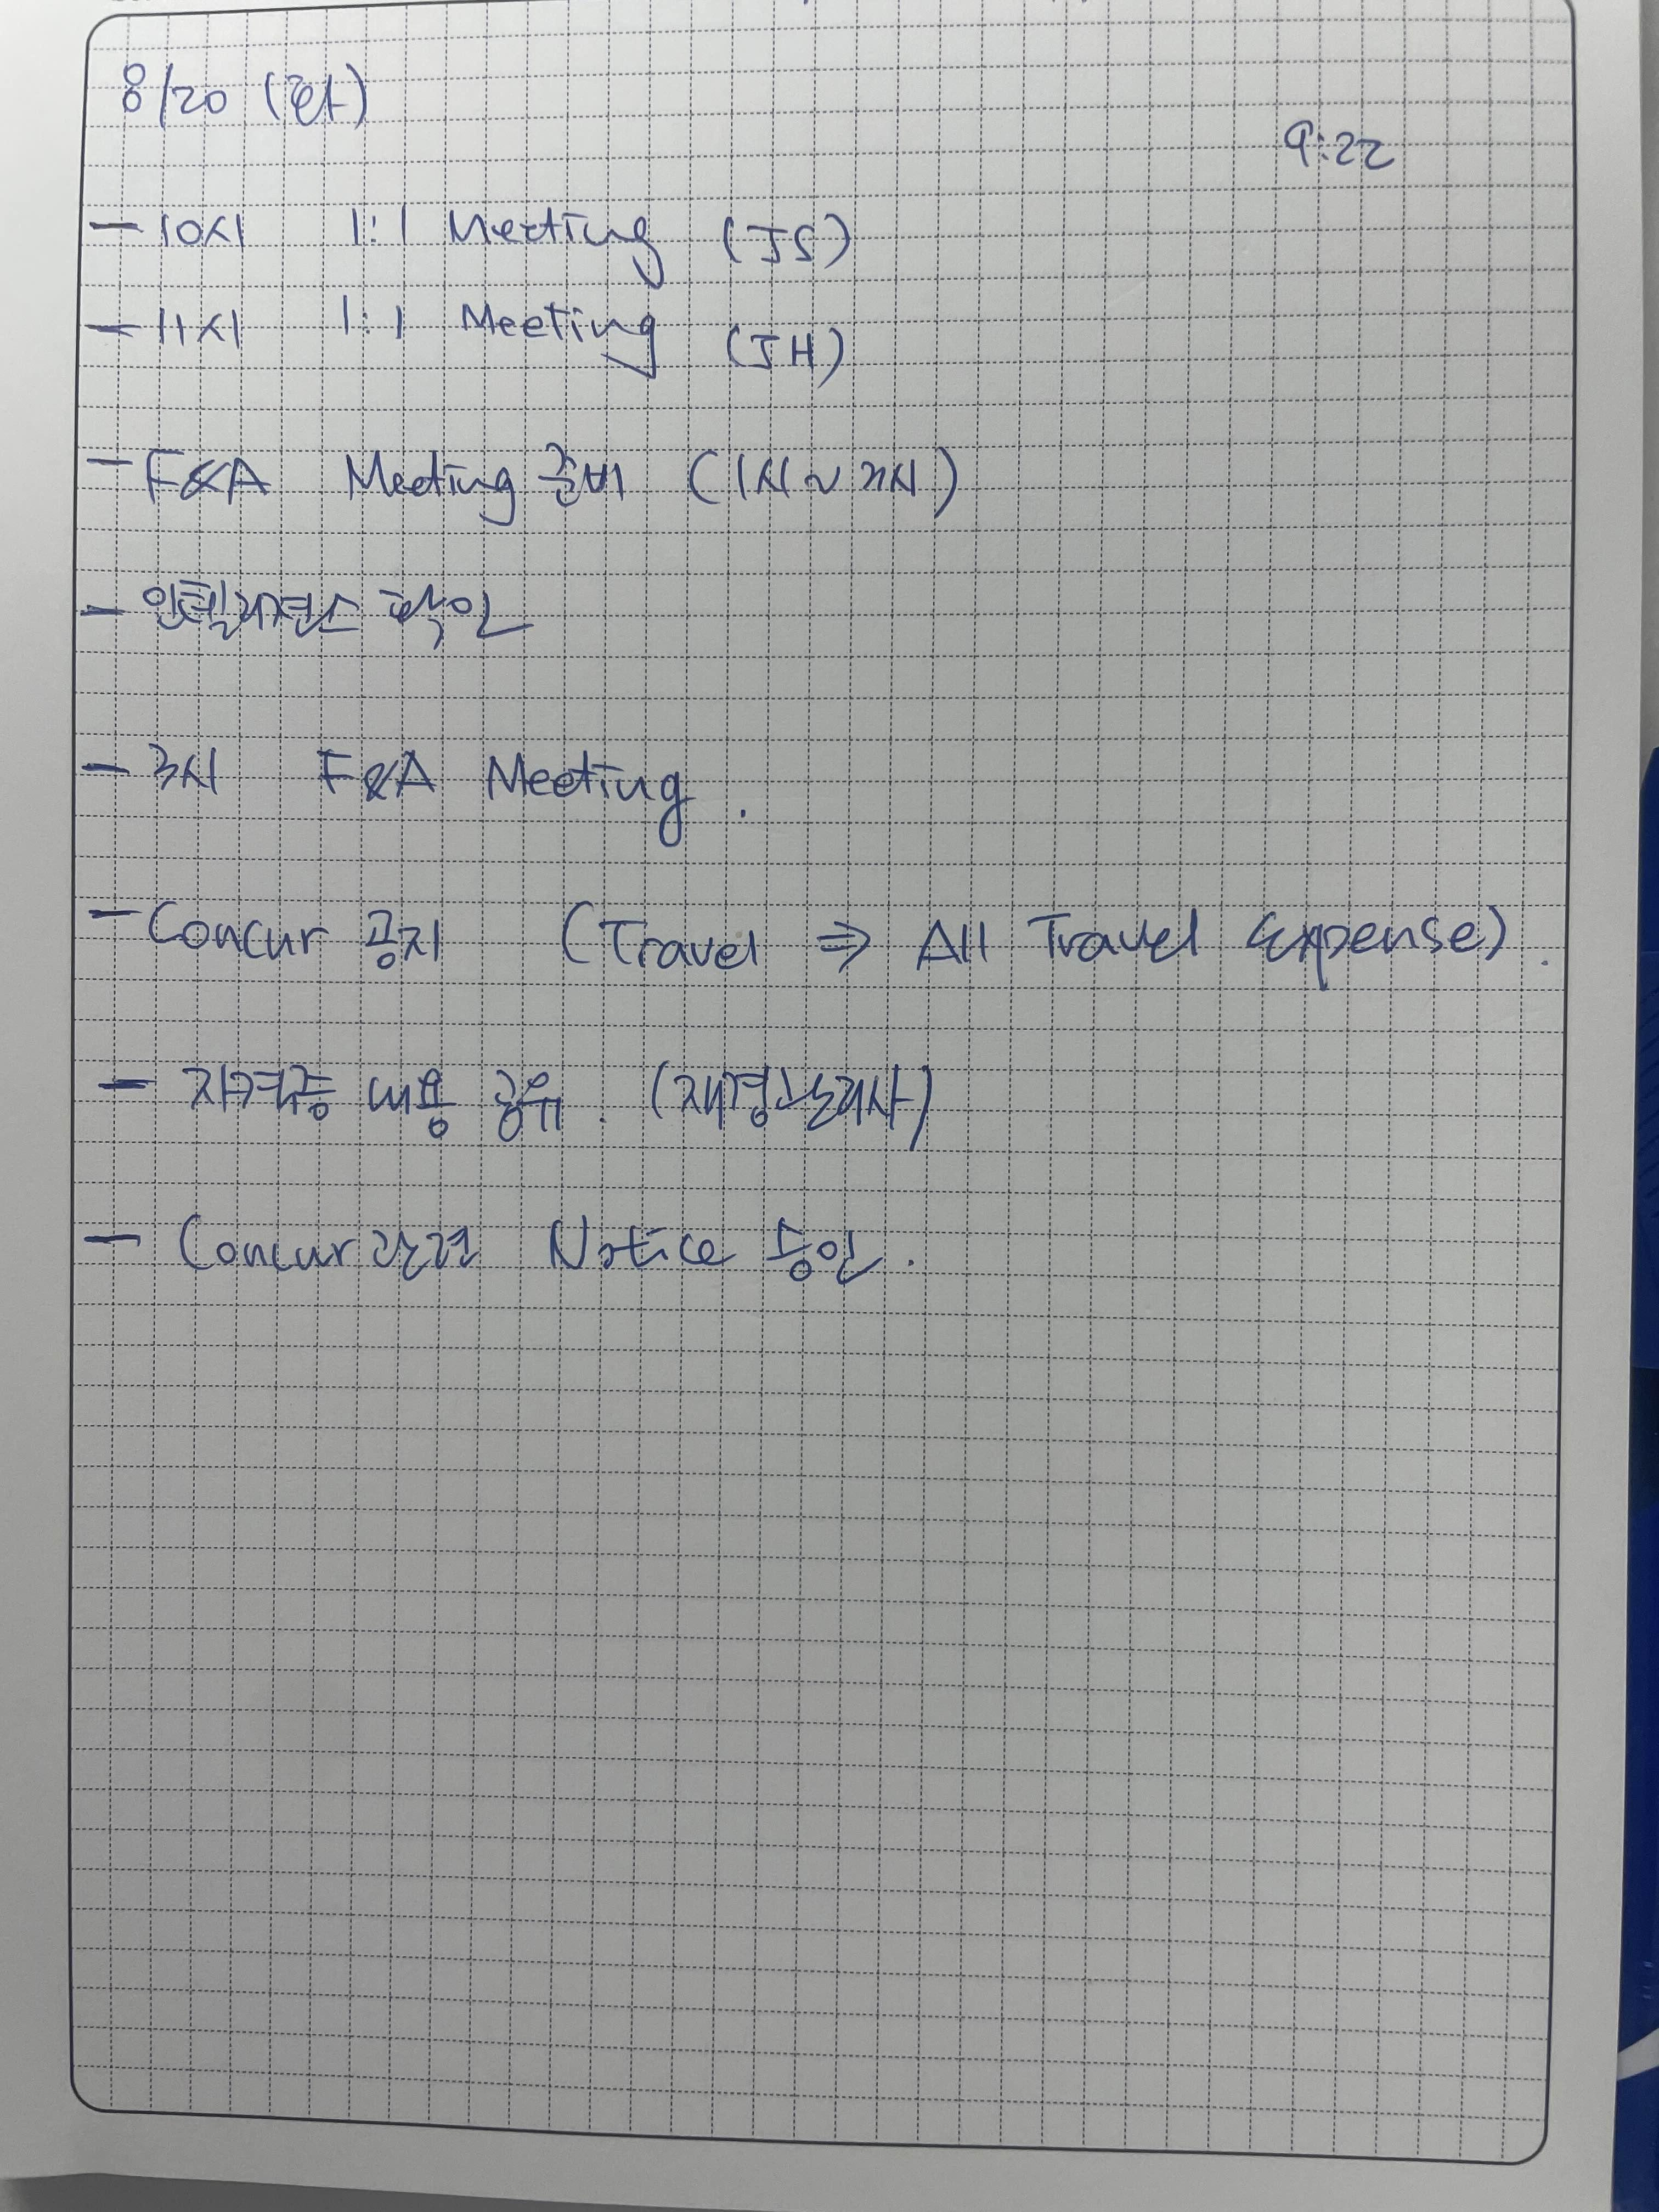 8/20 (화)
9:22
- 10시 1:1 Meeting (JS)
- 11시 1:1 Meeting (JH)
- F&A Meeting 준비 (1시~2시)
- 인텔리전스 확인
- 3시 F&A Meeting.
- Concur 공지 (Travel ⇒ All Travel Expense).
- 자격증 내용 공유. (재경관리사)
- Concur 관련 Notice 승인.